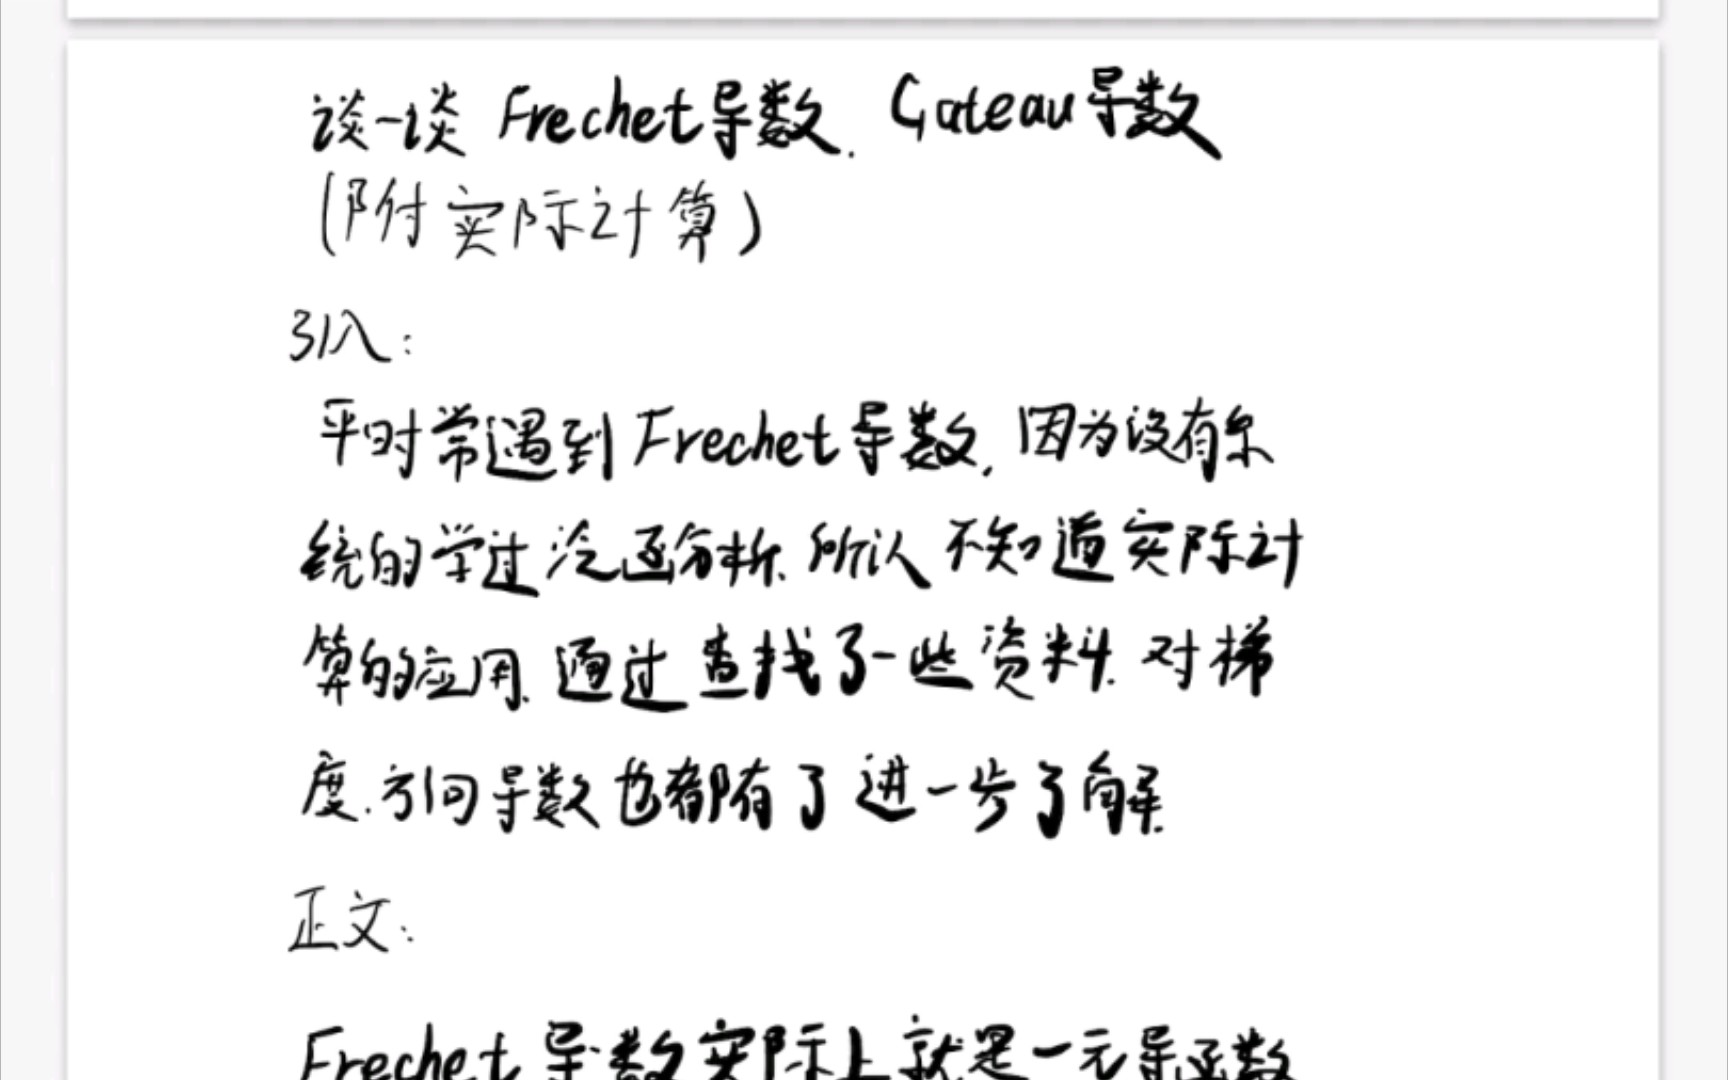 谈一谈 Frechet导数. Gateau导数
(附实际计算)
引入:
平时常遇到Frechet导数, 因为没有系
统的学过泛函分析.所以不知道实际计
算的应用.通过查找了一些资料.对梯
度.方向导数也都有了进一步了解.
正文:
Frechet导数实际上就是一元导函数